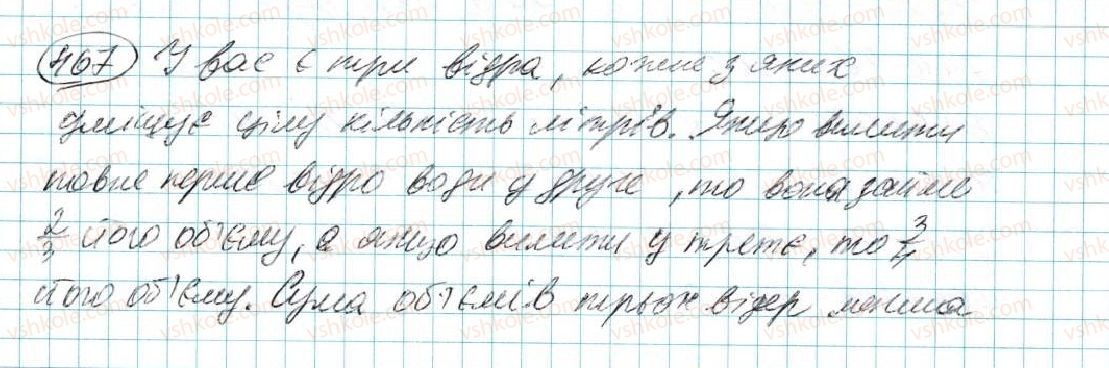 467 У вас є три відра, кожне з яких
вміщує цілу кількість літрів. Якщо вилити
повне перше відро води у друге, то вона займе
2/3 його об'єму, а якщо вилити у третє, то 3/4
його об'єму. Сума об'ємів трьох відер менша